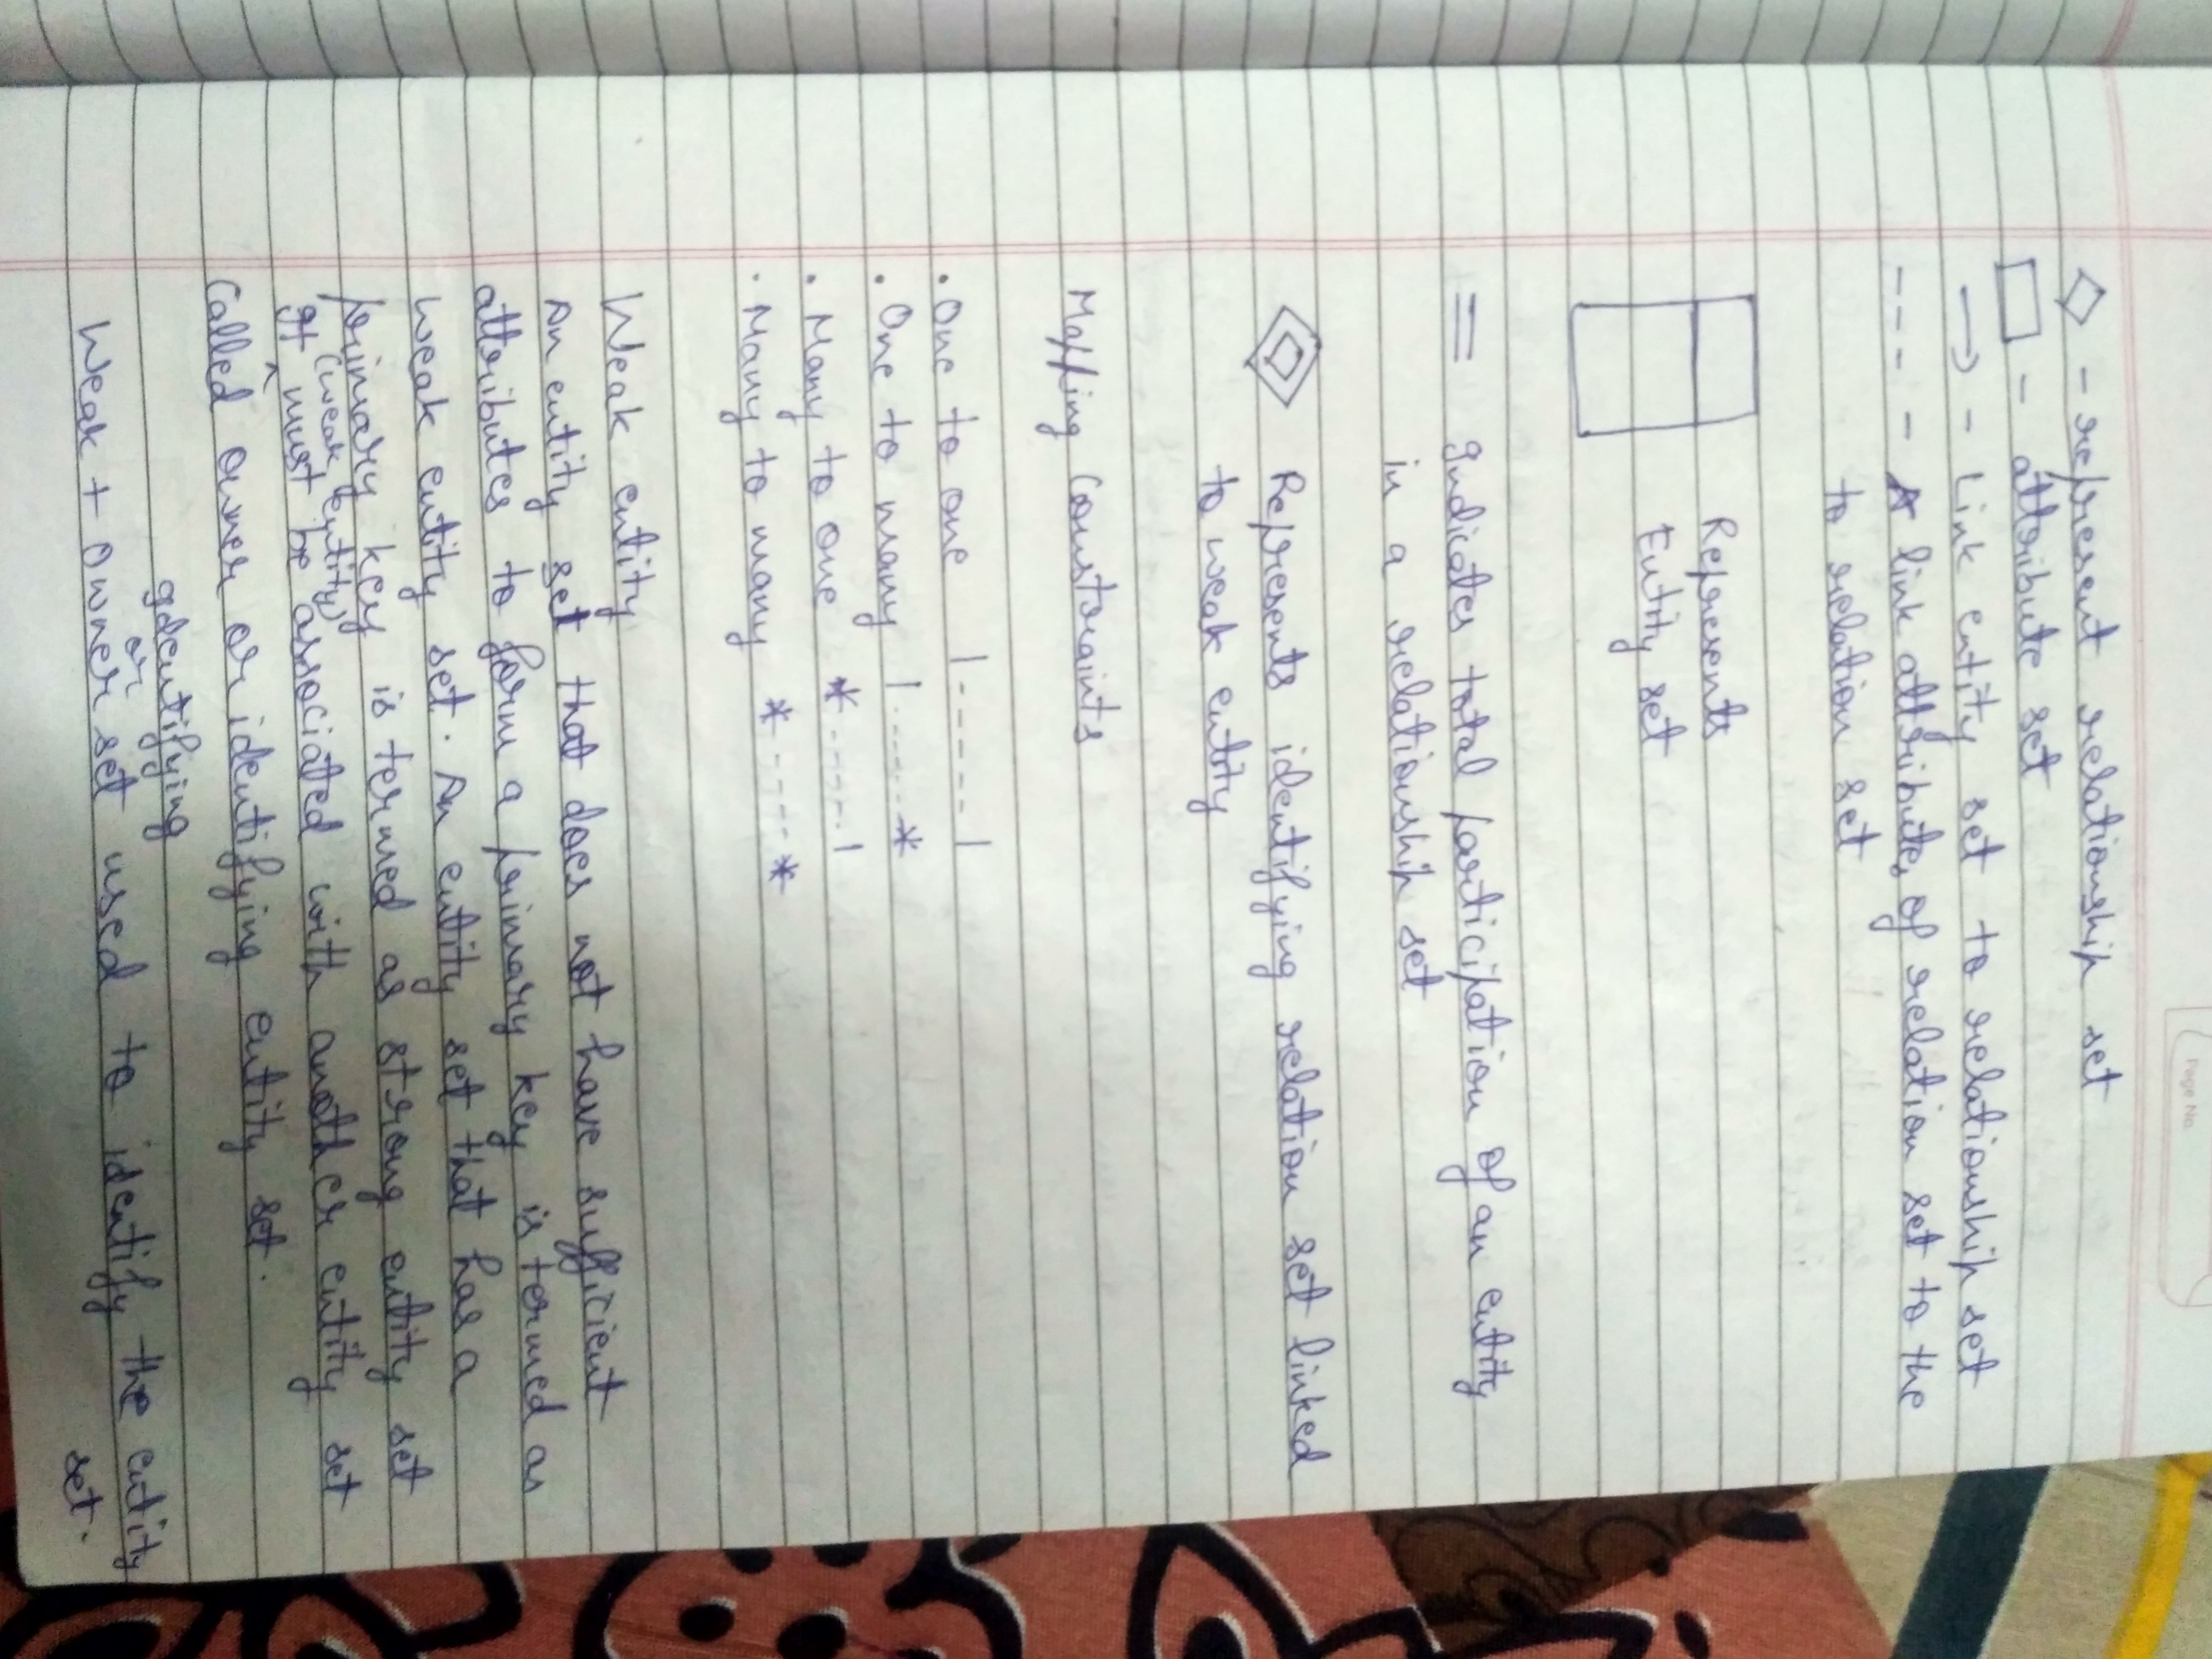 Page No.
◇ - represent relationship set
▭ - attribute set
→ - Link entity set to relationship set
---- - link attributes of relation set to the
to relation set
Represents
Entity set
= Indicates total participation of an entity
in a relationship set
Represents identifying relation set linked
to weak entity
Mapping Constraints
. One to one 1-----1
. One to many 1-----*
. Many to one *-----1
. Many to many *-----*
Weak entity
An entity set that does not have sufficient
attributes to form a primary key is termed as
weak entity set. An entity set that has a
primary key is termed as strong entity set
(weak entity)
It ^ must be associated with another entity set
Called owner or identifying entity set.
Identifying
or
Weak + Owner set used to identify the entity
set.